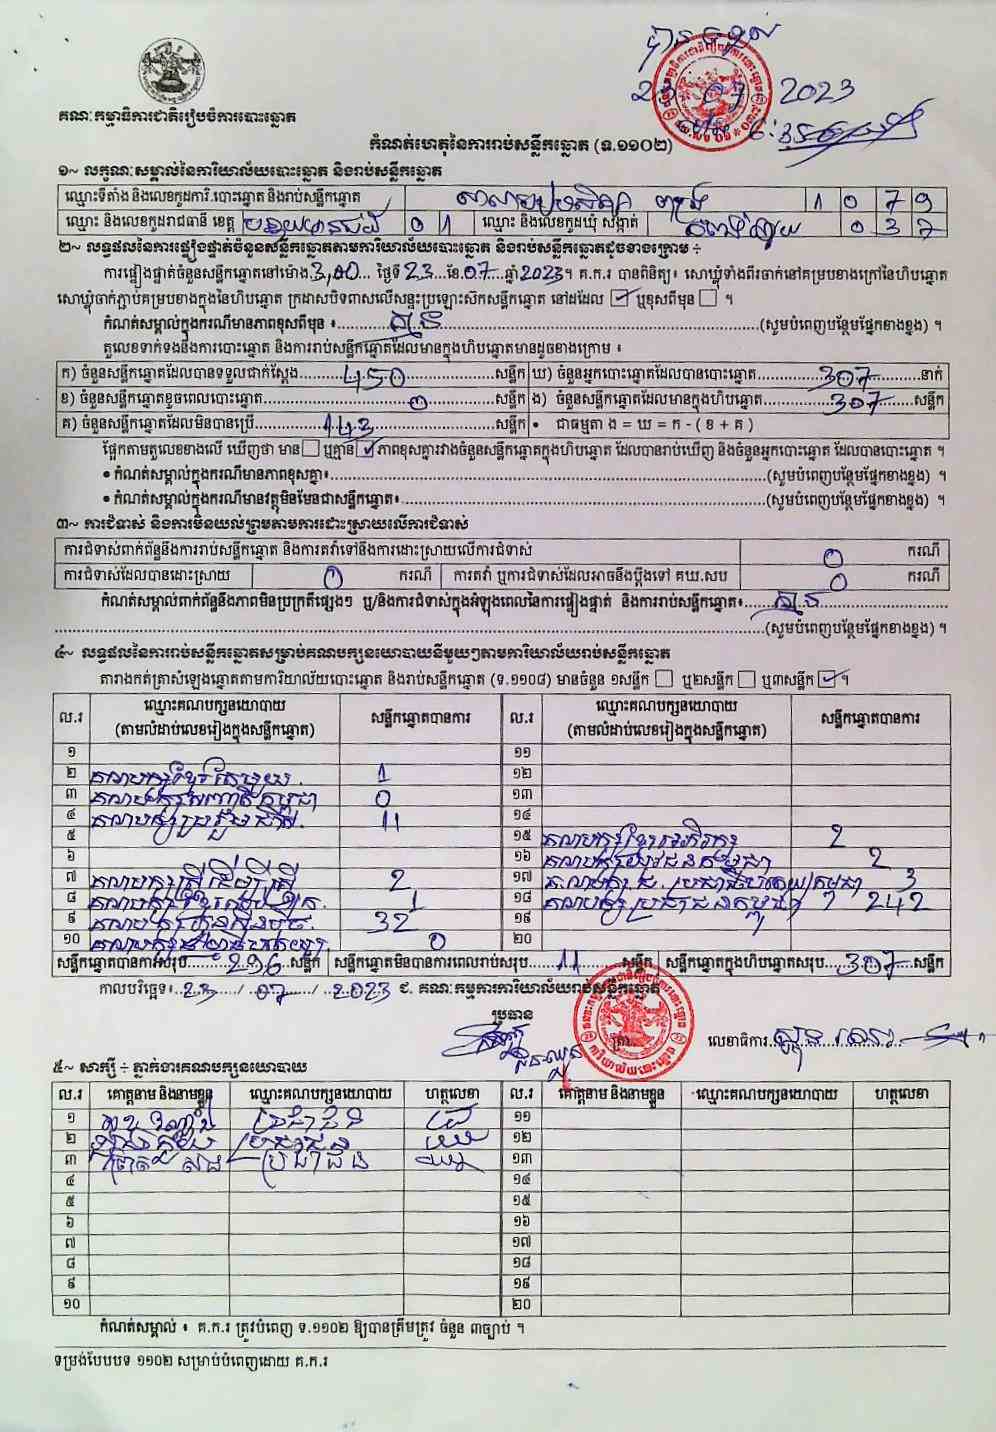 បានទទួល
23 07 2023
ម៉ោង 6:35
គណៈកម្មាធិការជាតិរៀបចំការបោះឆ្នោត
កំណត់ហេតុនៃការរាប់សន្លឹកឆ្នោត (ទ.១១០២)
១~ លក្ខណៈសម្គាល់នៃការិយាល័យបោះឆ្នោត និងរាប់សន្លឹកឆ្នោត
ឈ្មោះទីតាំង និងលេខកូដការិ.បោះឆ្នោត និងរាប់សន្លឹកឆ្នោត សាលាបឋមសិក្សា 1 0 7 9
ឈ្មោះ និងលេខកូដរាជធានី ខេត្ត បន្ទាយមានជ័យ 0 1 ឈ្មោះ និងលេខកូដឃុំ សង្កាត់ 0 3 7
២~ លទ្ធផលនៃការផ្ទៀងផ្ទាត់ចំនួនសន្លឹកឆ្នោតតាមការិយាល័យបោះឆ្នោត និងរាប់សន្លឹកឆ្នោតដូចខាងក្រោម ÷
ការផ្ទៀងផ្ទាត់ចំនួនសន្លឹកឆ្នោតនៅម៉ោង 3,00 ថ្ងៃទី 23 ខែ 07 ឆ្នាំ 2023។ គ.ក.រ បានពិនិត្យ៖ សោឃ្លុំទាំងពីរចាក់នៅគម្របខាងក្រៅនៃហិបឆ្នោត
សោឃ្លុំចាក់ភ្ជាប់គម្របខាងក្នុងនៃហិបឆ្នោត ក្រដាសបិទពាសលើសន្ទះប្រឡោះស៊កសន្លឹកឆ្នោត នៅដដែល ☑ ឬខុសពីមុន ☐ ។
កំណត់សម្គាល់ក្នុងករណីមានភាពខុសពីមុន ៖ គ្មាន (សូមបំពេញបន្ថែមផ្នែកខាងខ្នង) ។
តួលេខទាក់ទងនឹងការបោះឆ្នោត និងការរាប់សន្លឹកឆ្នោតដែលមានក្នុងហិបឆ្នោតមានដូចខាងក្រោម ៖
ក) ចំនួនសន្លឹកឆ្នោតដែលបានទទួលជាក់ស្តែង 450 សន្លឹក ឃ) ចំនួនអ្នកបោះឆ្នោតដែលបានបោះឆ្នោត 307 នាក់
ខ) ចំនួនសន្លឹកឆ្នោតខូចពេលបោះឆ្នោត 0 សន្លឹក ង) ចំនួនសន្លឹកឆ្នោតដែលមានក្នុងហិបឆ្នោត 307 សន្លឹក
គ) ចំនួនសន្លឹកឆ្នោតដែលមិនបានប្រើ 143 សន្លឹក • ជាធម្មតា ង = ឃ = ក - ( ខ + គ )
ផ្អែកតាមតួលេខខាងលើ ឃើញថា មាន ☐ ឬគ្មាន ☑ ភាពខុសគ្នារវាងចំនួនសន្លឹកឆ្នោតក្នុងហិបឆ្នោត ដែលបានរាប់ឃើញ និងចំនួនអ្នកបោះឆ្នោត ដែលបានបោះឆ្នោត ។
• កំណត់សម្គាល់ក្នុងករណីមានភាពខុសគ្នា៖ (សូមបំពេញបន្ថែមផ្នែកខាងខ្នង) ។
• កំណត់សម្គាល់ក្នុងករណីមានវត្ថុមិនមែនជាសន្លឹកឆ្នោត៖ (សូមបំពេញបន្ថែមផ្នែកខាងខ្នង) ។
៣~ ការជំទាស់ និងការមិនយល់ព្រមតាមការដោះស្រាយលើការជំទាស់
ការជំទាស់ពាក់ព័ន្ធនឹងការរាប់សន្លឹកឆ្នោត និងការតវ៉ាទៅនឹងការដោះស្រាយលើការជំទាស់ 0 ករណី
ការជំទាស់ដែលបានដោះស្រាយ 0 ករណី ការតវ៉ា ឬការជំទាស់ដែលអាចនឹងប្តឹងទៅ គឃ.សប 0 ករណី
កំណត់សម្គាល់ពាក់ព័ន្ធនឹងភាពមិនប្រក្រតីផ្សេងៗ ឬ/និងការជំទាស់ក្នុងអំឡុងពេលនៃការផ្ទៀងផ្ទាត់ និងការរាប់សន្លឹកឆ្នោត៖ គ្មាន
(សូមបំពេញបន្ថែមផ្នែកខាងខ្នង) ។
៤~ លទ្ធផលនៃការរាប់សន្លឹកឆ្នោតសម្រាប់គណបក្សនយោបាយនីមួយៗតាមការិយាល័យរាប់សន្លឹកឆ្នោត
តារាងកត់ត្រាសំឡេងឆ្នោតតាមការិយាល័យបោះឆ្នោត និងរាប់សន្លឹកឆ្នោត (ទ.១១០៨) មានចំនួន ១សន្លឹក ☐ ឬ២សន្លឹក ☐ ឬ៣សន្លឹក ☑ ។
ល.រ ឈ្មោះគណបក្សនយោបាយ (តាមលំដាប់លេខរៀងក្នុងសន្លឹកឆ្នោត) សន្លឹកឆ្នោតបានការ ល.រ ឈ្មោះគណបក្សនយោបាយ (តាមលំដាប់លេខរៀងក្នុងសន្លឹកឆ្នោត) សន្លឹកឆ្នោតបានការ
១ ១១
២ គណបក្សខ្មែរតែមួយ 1 ១២
៣ គណបក្ស កម្ពុជា 0 ១៣
៤ គណបក្ស 11 ១៤
៥ ១៥ គណបក្សខ្មែរអភិរក្ស 2
៦ ១៦ គណបក្សយុវជនកម្ពុជា 2
៧ គណបក្សស្ត្រីដើម្បីស្ត្រី 2 ១៧ គណបក្ស កម្ពុជា 3
៨ គណបក្សខ្មែរ 1 ១៨ គណបក្សប្រជាជនកម្ពុជា 242
៩ គណបក្សហ្វ៊ុនស៊ិនប៉ិច 32 ១៩
១០ គណបក្ស 0 ២០
សន្លឹកឆ្នោតបានការសរុប 296 សន្លឹក សន្លឹកឆ្នោតមិនបានការពេលរាប់សរុប 11 សន្លឹក សន្លឹកឆ្នោតក្នុងហិបឆ្នោតសរុប 307 សន្លឹក
កាលបរិច្ឆេទ៖ 23 / 07 / 2023 ជ. គណៈកម្មការការិយាល័យរាប់សន្លឹកឆ្នោត
ប្រធាន
ត្រា លេខាធិការ
៥~ សាក្សី ÷ ភ្នាក់ងារគណបក្សនយោបាយ
ល.រ គោត្តនាម និងនាមខ្លួន ឈ្មោះគណបក្សនយោបាយ ហត្ថលេខា ល.រ គោត្តនាម និងនាមខ្លួន ឈ្មោះគណបក្សនយោបាយ ហត្ថលេខា
១ ១១
២ ប្រជាជន ១២
៣ ប្រជាជន ១៣
៤ ១៤
៥ ១៥
៦ ១៦
៧ ១៧
៨ ១៨
៩ ១៩
១០ ២០
កំណត់សម្គាល់ ៖ គ.ក.រ ត្រូវបំពេញ ទ.១១០២ ឱ្យបានត្រឹមត្រូវ ចំនួន ៣ច្បាប់ ។
ទម្រង់បែបបទ ១១០២ សម្រាប់បំពេញដោយ គ.ក.រ